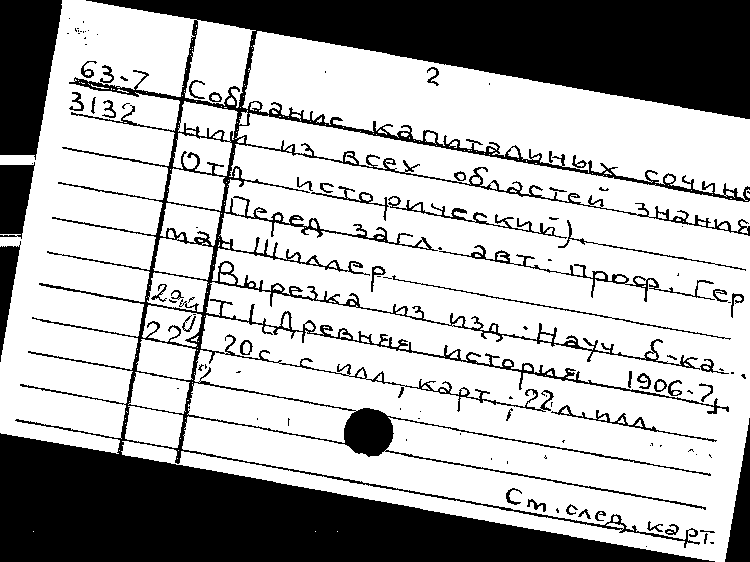 2
63-7
3132
Собрание капитальных сочине
ний из всех областей знания
Отд. исторический).
Перед загл. авт.: проф. Гер
ман Шиллер.
Вырезка из изд.: Науч. б-ка...
Т. I, Древняя история. 1906-7,
224, 20с. с илл., карт.; 22л. илл.
Ст. след. карт.